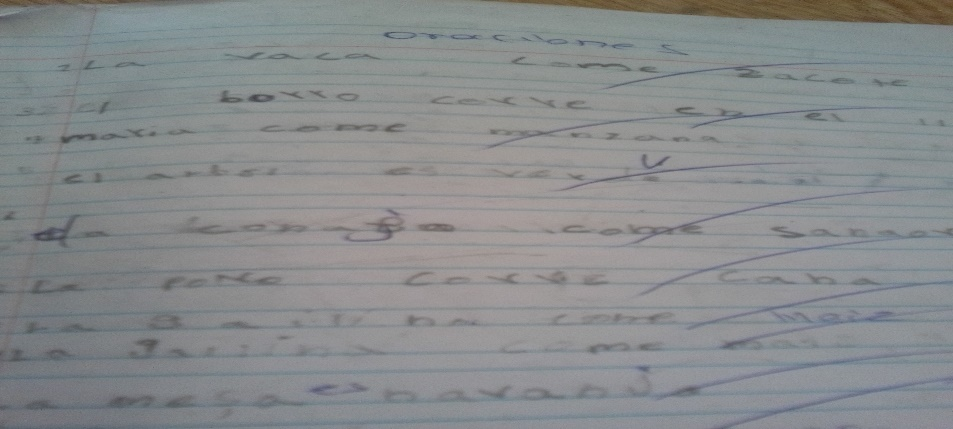 oraciones
La vaca come zacate
el borro corre en el
maria come manzana
el arbol es verde
conejo come
La corre
La gallina come maiz
La gallina come
La mesa es naranja